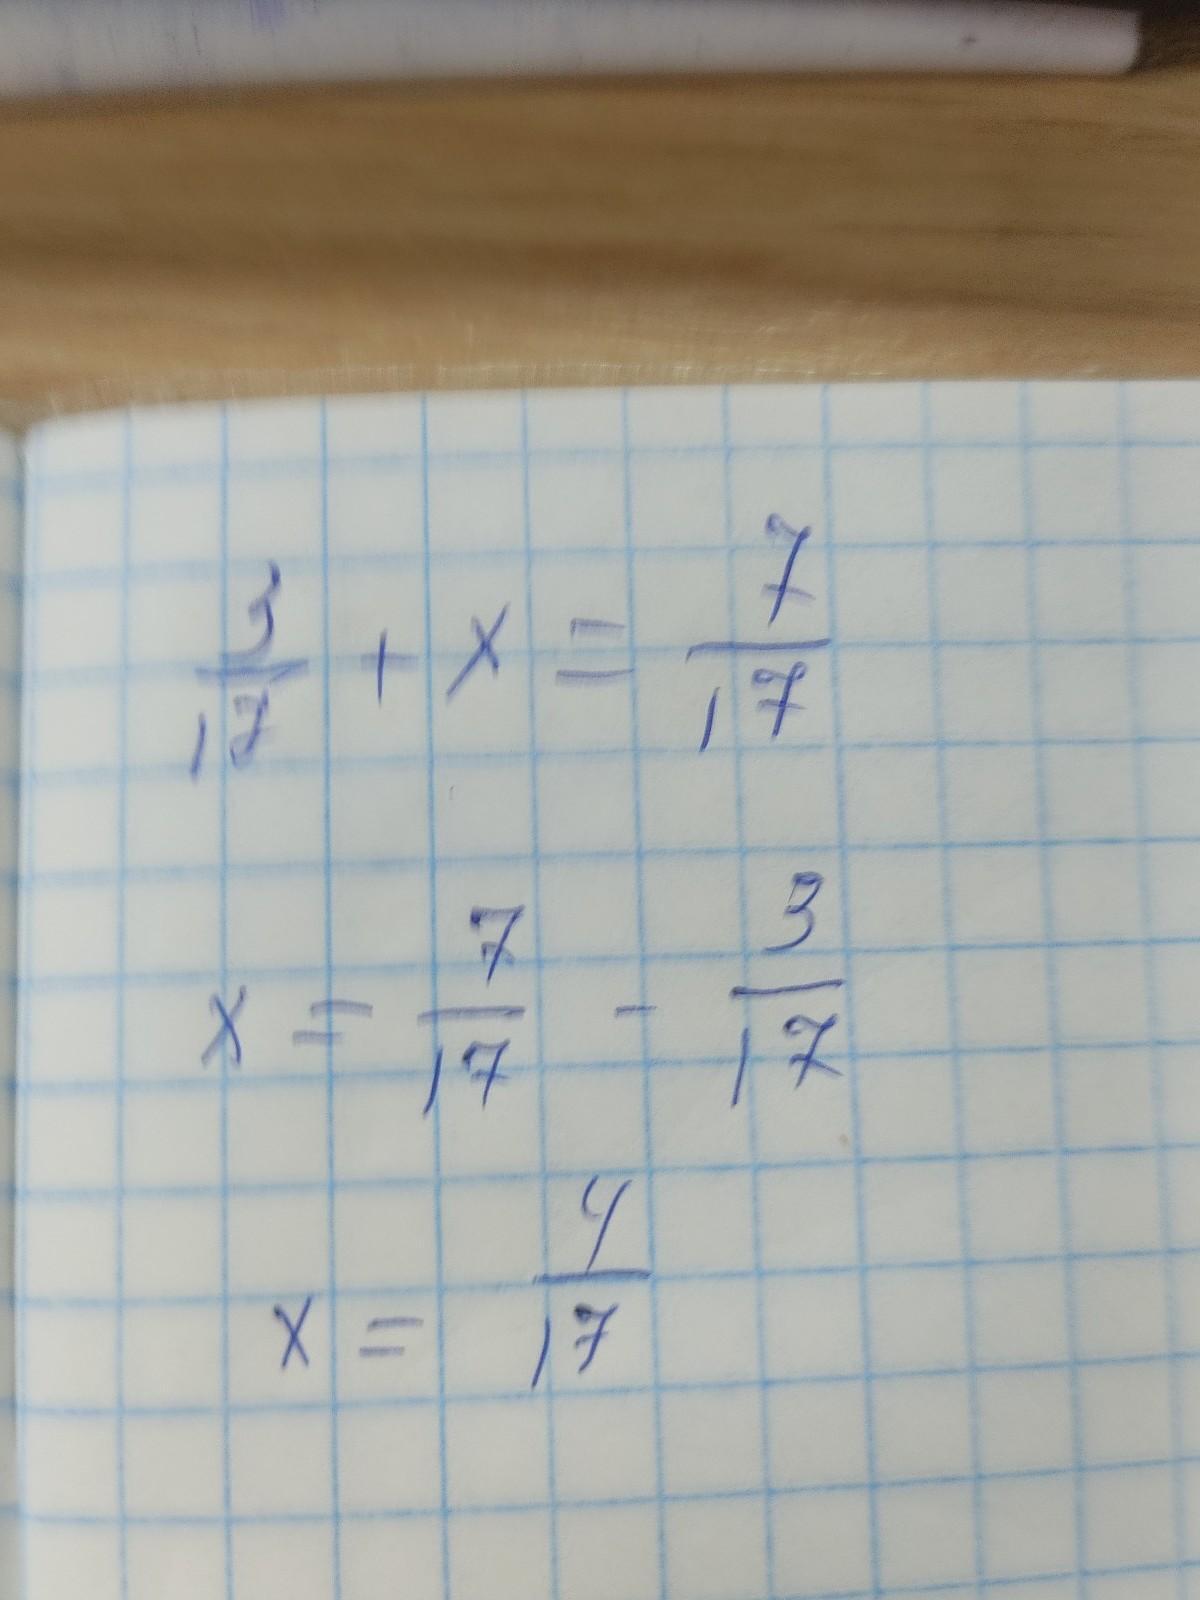 3/17 + x = 7/17
x = 7/17 - 3/17
x = 4/17